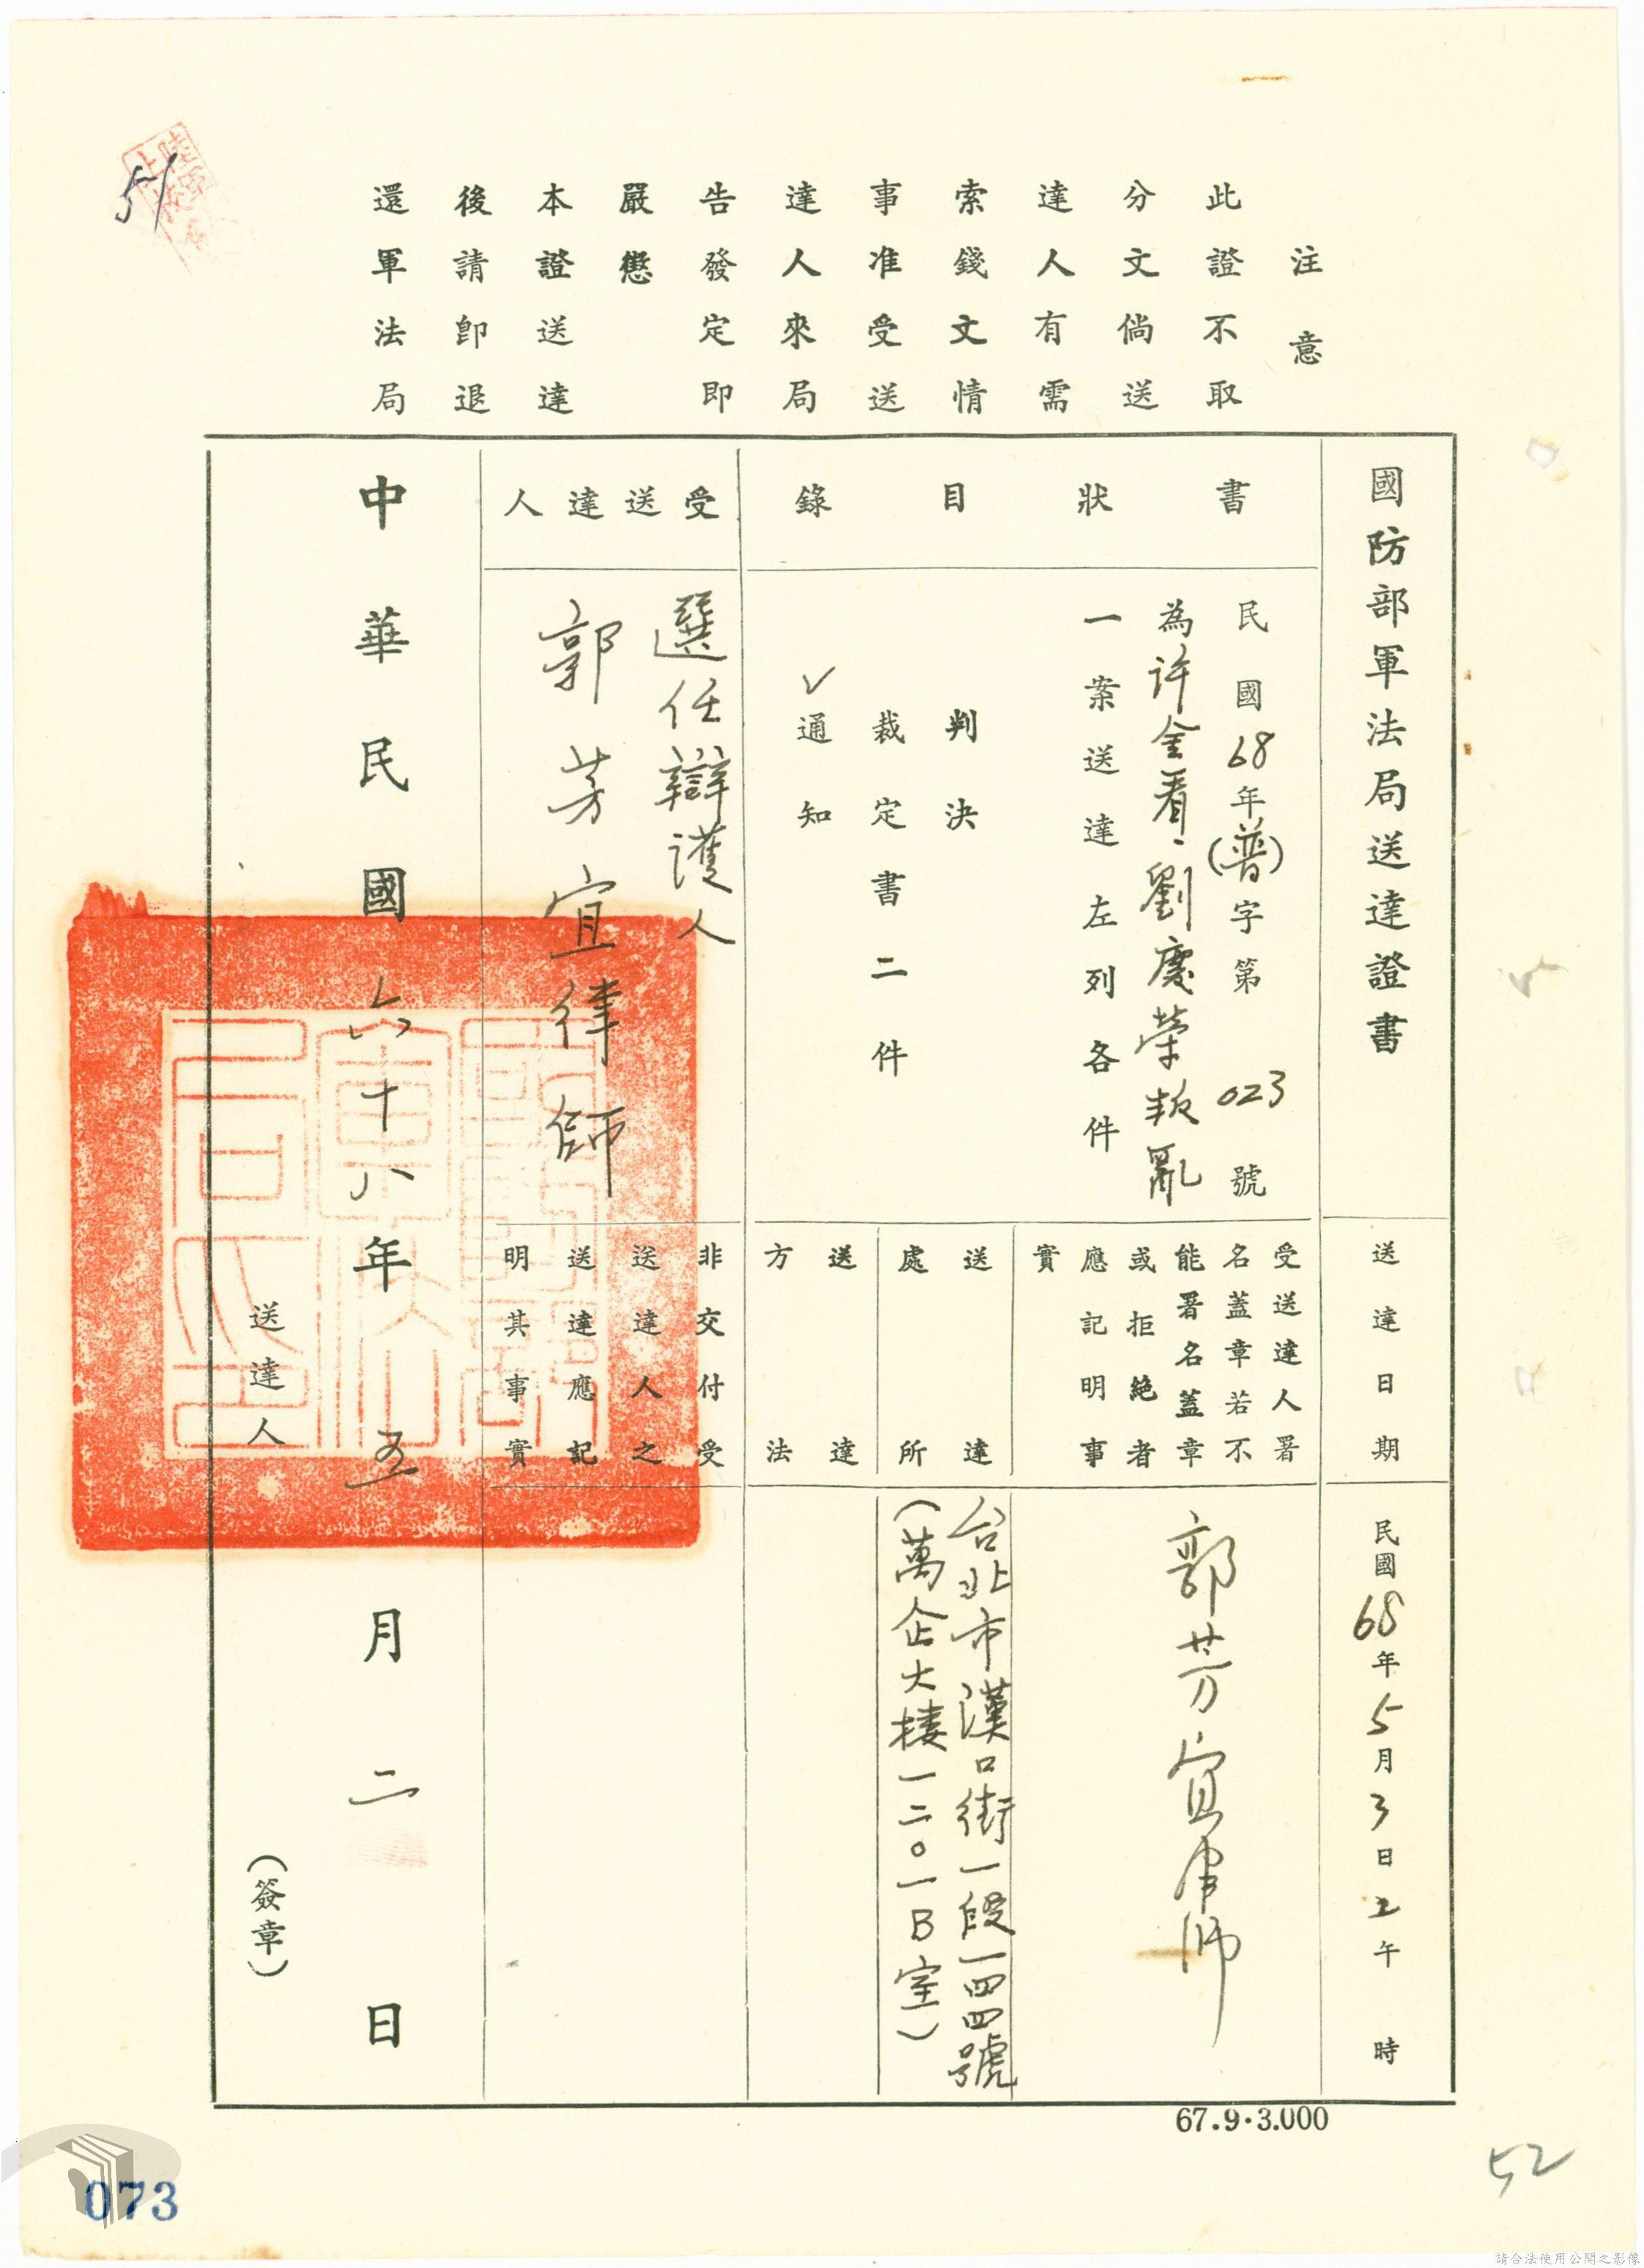 注意
此證不取
分文倘送
達人有需
索錢文情
事准受送
達人來局
告發定即
嚴懲
本證送達
後請卽退
還軍法局
51
國防部軍法局送達證書
送達日期
民國68年5月3日上午 時
書狀目錄
民國68年(普)字第023號
為许金看、劉慶荣叛亂
一案送達左列各件
判決
裁定書二件
✓通知
受送達人署
名蓋章若不
能署名蓋章
或拒絕者
應記明事
實
郭芳宜律师
送達
處所
台北市漢口街一段一四四號
(萬企大楼一二〇一B室)
送達
方法
受送達人
選任辯護人
郭芳宜律師
非交付受
送達人之
送達應記
明其事實
中華民國六十八年五月二日
送達人
(簽章)
67.9.3.000
52
073
請合法使用公開之影像